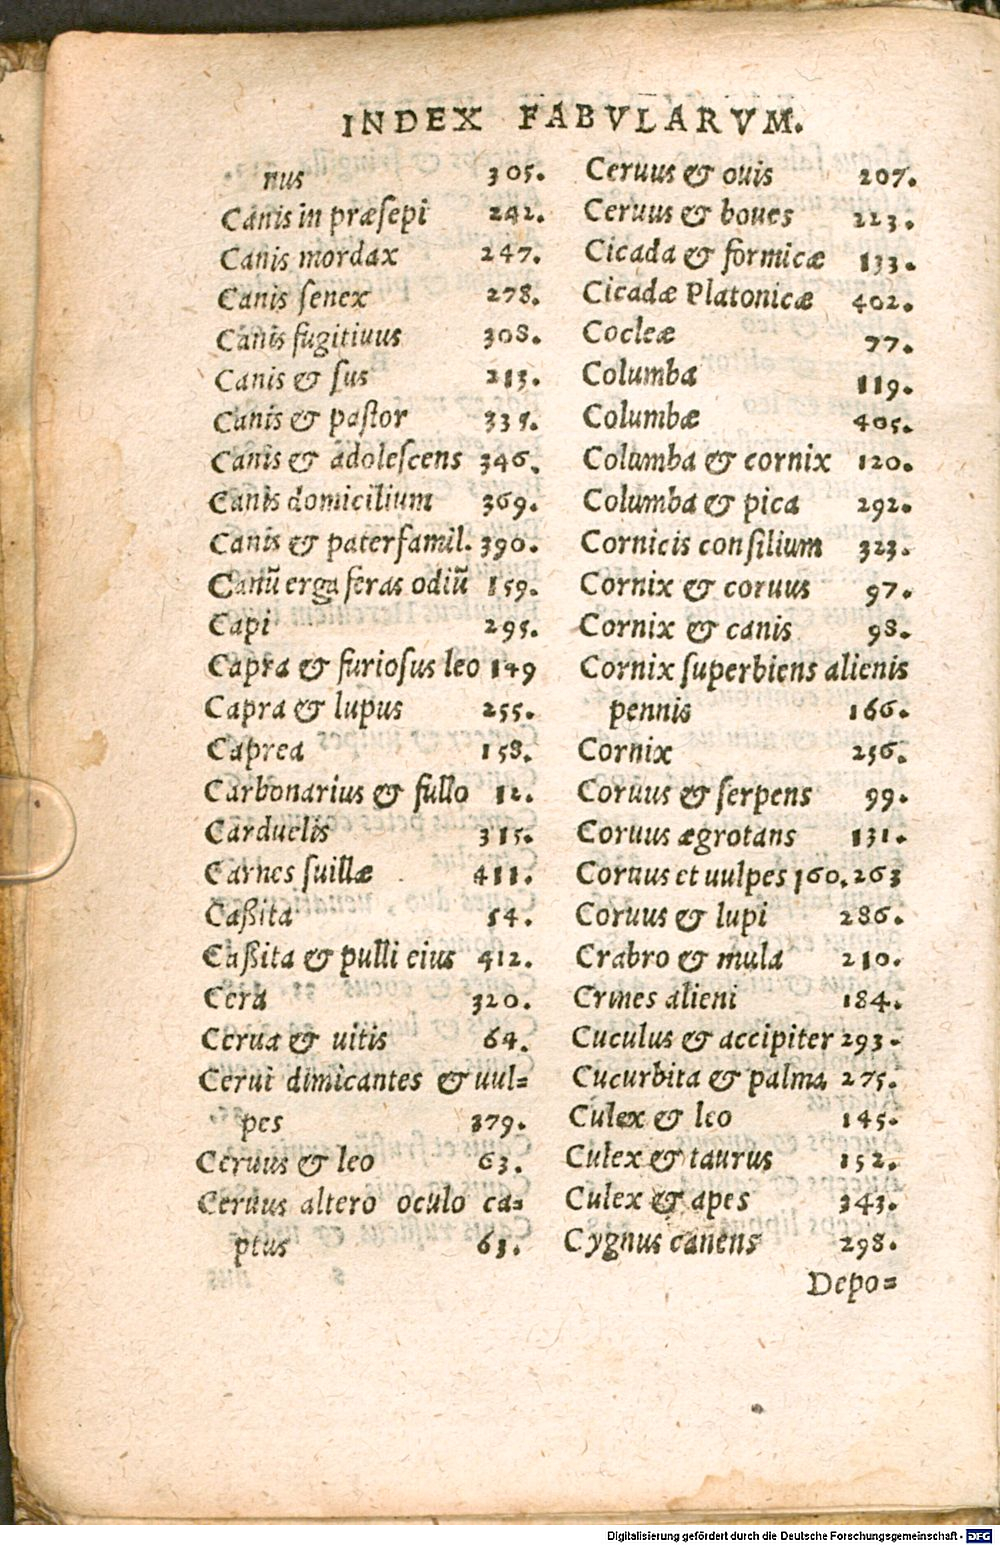 INDEX FABVLARVM.
nus 305.
Canis in præsepi 242.
Canis mordax 247.
Canis senex 278.
Canis fugitiuus 308.
Canis & sus 213.
Canis & pastor 335.
Canis & adolescens 346.
Canis domicilium 369.
Canis & paterfamil. 390.
Canū erga feras odiū 159.
Capi 295.
Capra & furiosus leo 149
Capra & lupus 255.
Caprea 158.
Carbonarius & fullo 12.
Carduelis 315.
Carnes suillæ 411.
Caßita 54.
Caßita & pulli eius 412.
Cera 320.
Cerua & uitis 64.
Cerui dimicantes & uul=
pes 379.
Ceruus & leo 63.
Ceruus altero oculo ca=
ptus 61.
Ceruus & ouis 207.
Ceruus & boues 223.
Cicada & formicæ 133.
Cicadæ Platonicæ 402.
Cocleæ 77.
Columba 119.
Columbæ 405.
Columba & cornix 120.
Columba & pica 292.
Cornicis consilium 323.
Cornix & coruus 97.
Cornix & canis 98.
Cornix superbiens alienis
pennis 166.
Cornix 256.
Coruus & serpens 99.
Coruus ægrotans 131.
Coruus et uulpes 160.263
Coruus & lupi 286.
Crabro & mula 210.
Crines alieni 184.
Cuculus & accipiter 293.
Cucurbita & palma 275.
Culex & leo 145.
Culex & taurus 152.
Culex & apes 343.
Cygnus canens 298.
Depo=
Digitalisierung gefördert durch die Deutsche Forschungsgemeinschaft - DFG